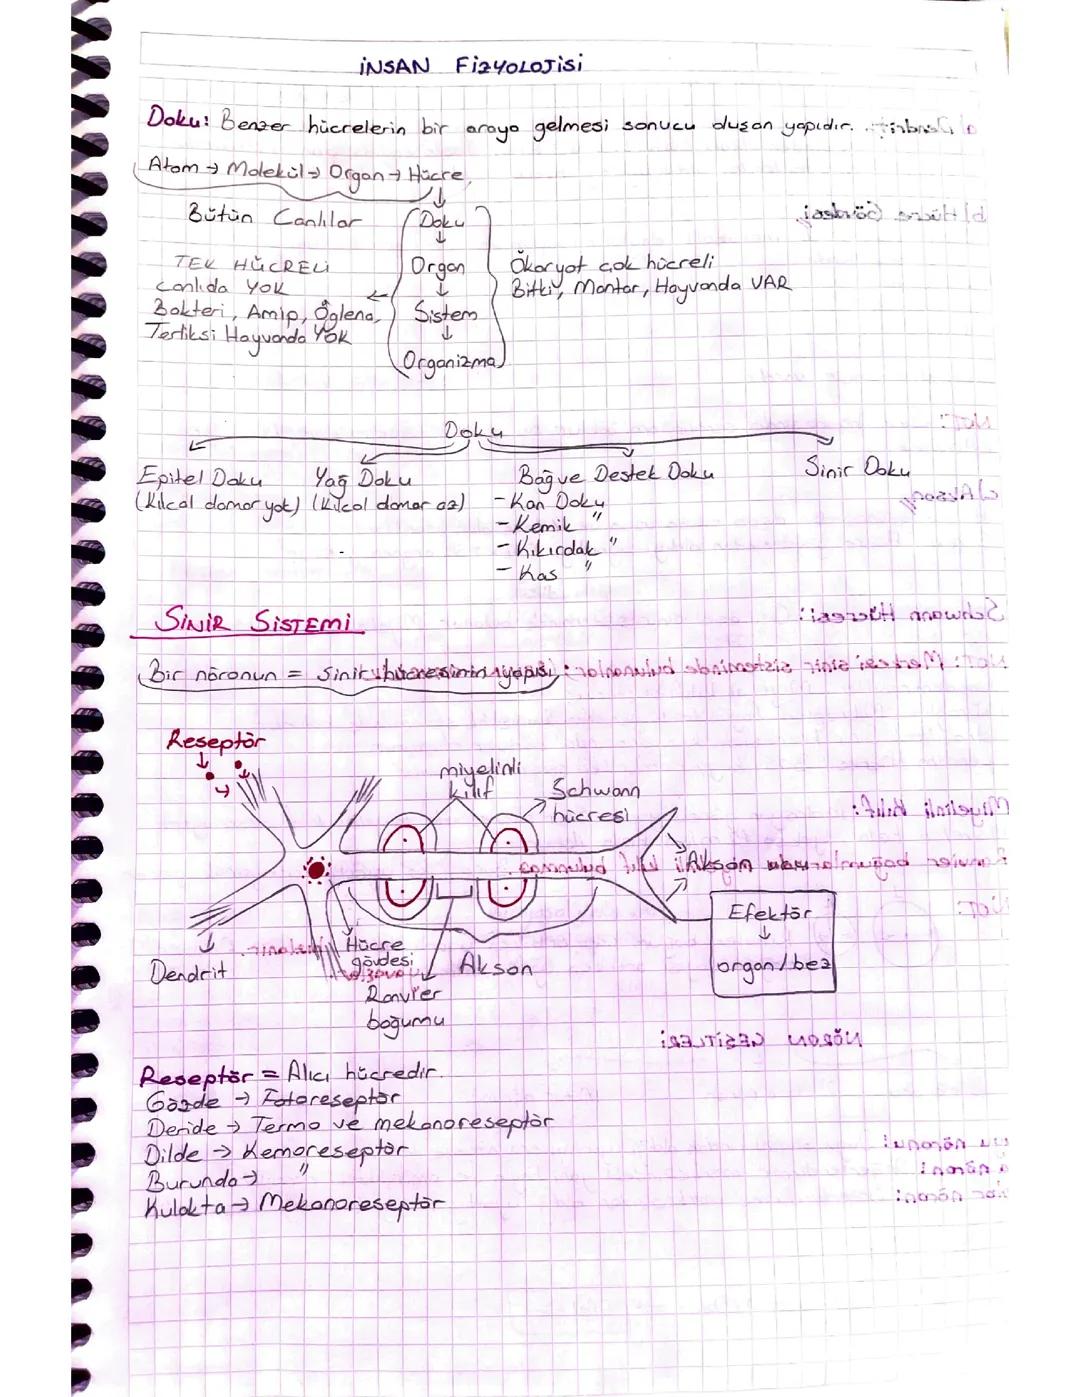 İNSAN FİZYOLOJİSİ
Doku: Benzer hücrelerin bir araya gelmesi sonucu oluşan yapıdır.
Atom → Molekül → Organ → Hücre
Bütün Canlılar
Doku
↓
Organ
↓
Sistem
↓
Organizma
TEK HÜCRELİ
canlıda YOK
Bakteri, Amip, Öglena,
Terliksi Hayvanda YOK
Ökaryot çok hücreli
Bitki, Mantar, Hayvanda VAR
Doku
Epitel Doku
(Kılcal damar yok)
Yağ Doku
(Kılcal damar az)
Bağ ve Destek Doku
- Kan Doku
- Kemik "
- Kıkırdak "
- Kas "
Sinir Doku
SİNİR SİSTEMİ
Bir nöronun = sinir hücresinin yapısı
Reseptör
miyelinli
kılıf
Schwann
hücresi
Akson
Efektör
↓
organ/bez
Dendrit
Hücre
gövdesi
Akson
Ranvier
boğumu
Reseptör = Alıcı hücredir.
Gözde → Fotoreseptör
Deride → Termo ve mekanoreseptör
Dilde → Kemoreseptör
Burunda → "
Kulakta → Mekanoreseptör